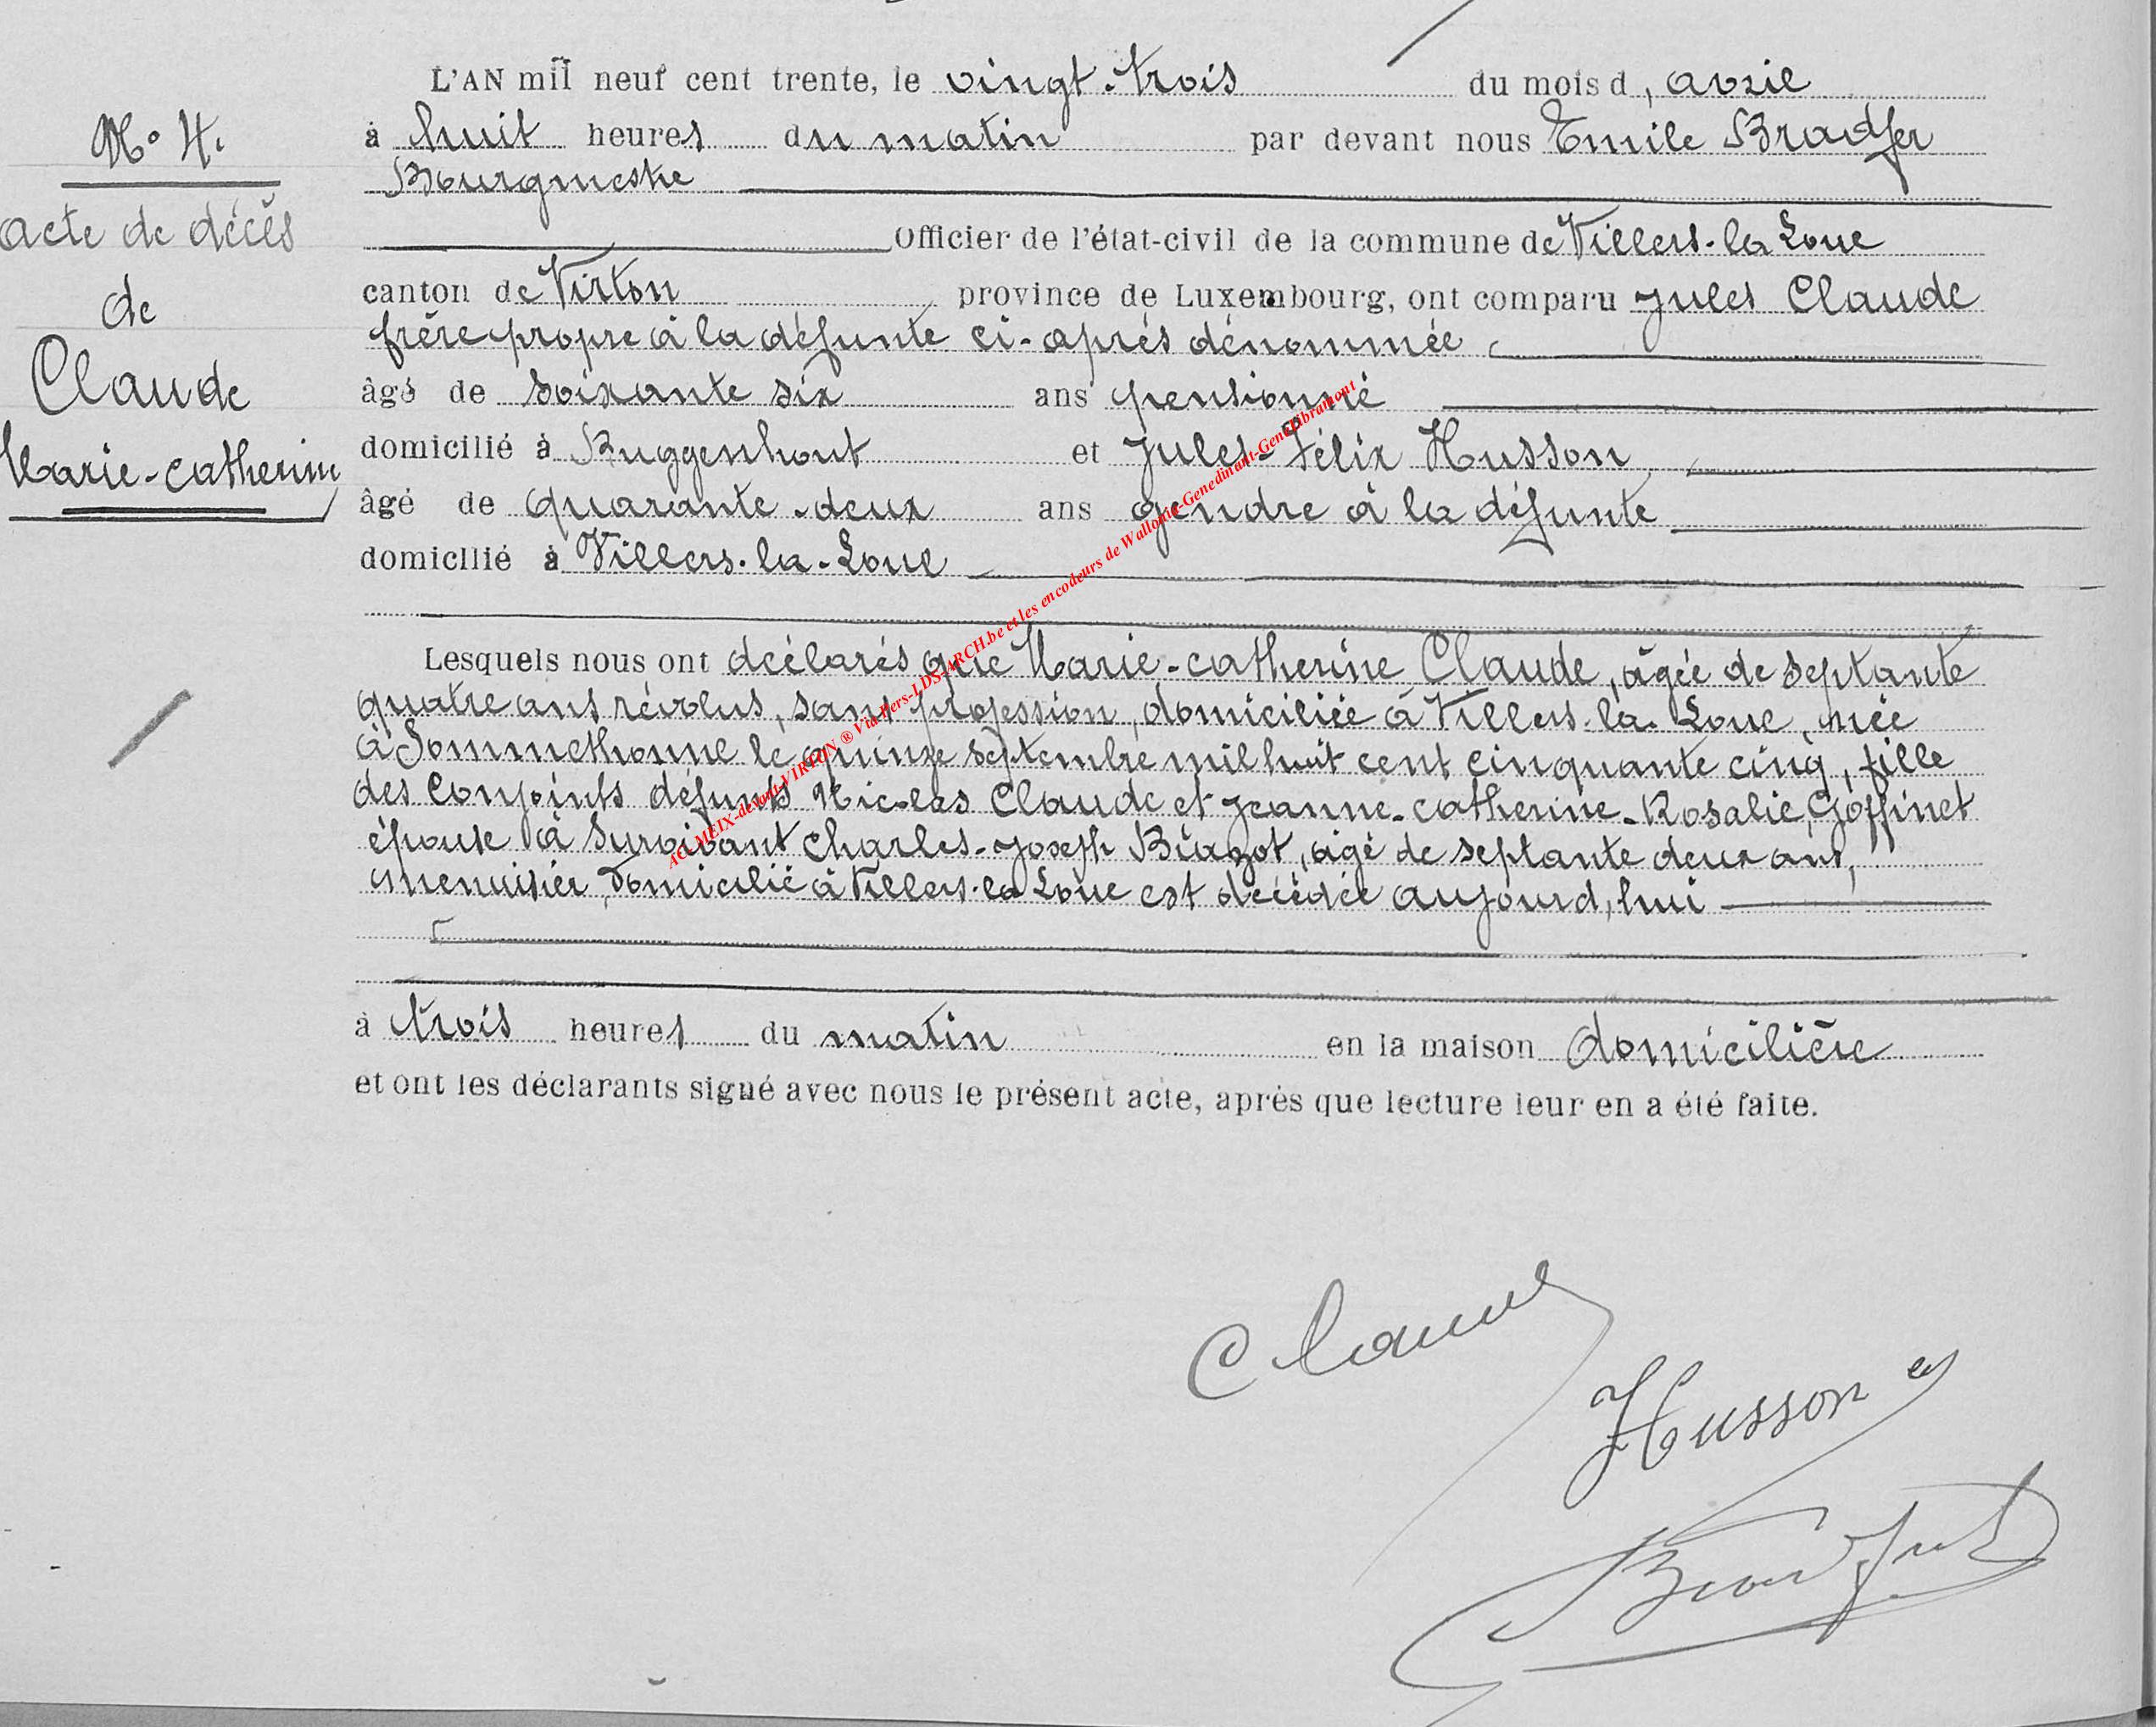 L'AN mil neuf cent trente, le vingt-trois du mois d, avril
N° 4.
à huit heures du matin par devant nous Emile Bradfer
Bourgmestre
acte de décès
Officier de l'état-civil de la commune de Villers-la Loue
de
canton de Virton province de Luxembourg, ont comparu Jules Claude
frère propre à la défunte ci-après dénommée
Claude
âgé de soixante six ans pensionné
Marie-catherine
domicilié à Buggenhout et Jules-Félix Husson,
âgé de quarante-deux ans gendre à la défunte
domicilié à Villers-la-Loue
Lesquels nous ont déclarés que Marie-catherine Claude, âgée de septante
quatre ans révolus, sans profession, domiciliée à Villers-la-Loue, née
à Sommethonne le quinze septembre mil huit cent cinquante cinq, fille
des conjoints défunts Nicolas Claude et Jeanne-catherine-Rosalie, Goffinet
épouse à survivant Charles-Joseph Biazot, âgé de septante deux ans,
menuisier, domicilié à Villers-la Loue est décédée aujourd,hui
à trois heures du matin en la maison domicilière
et ont les déclarants signé avec nous le présent acte, après que lecture leur en a été faite.
Claude
Husson
Bradfer
AC MEIX-devant-VIRTON ® Via Pers-LDS-ARCH.be et les encodeurs de Wallonie-Genedinant-GeneLibramont